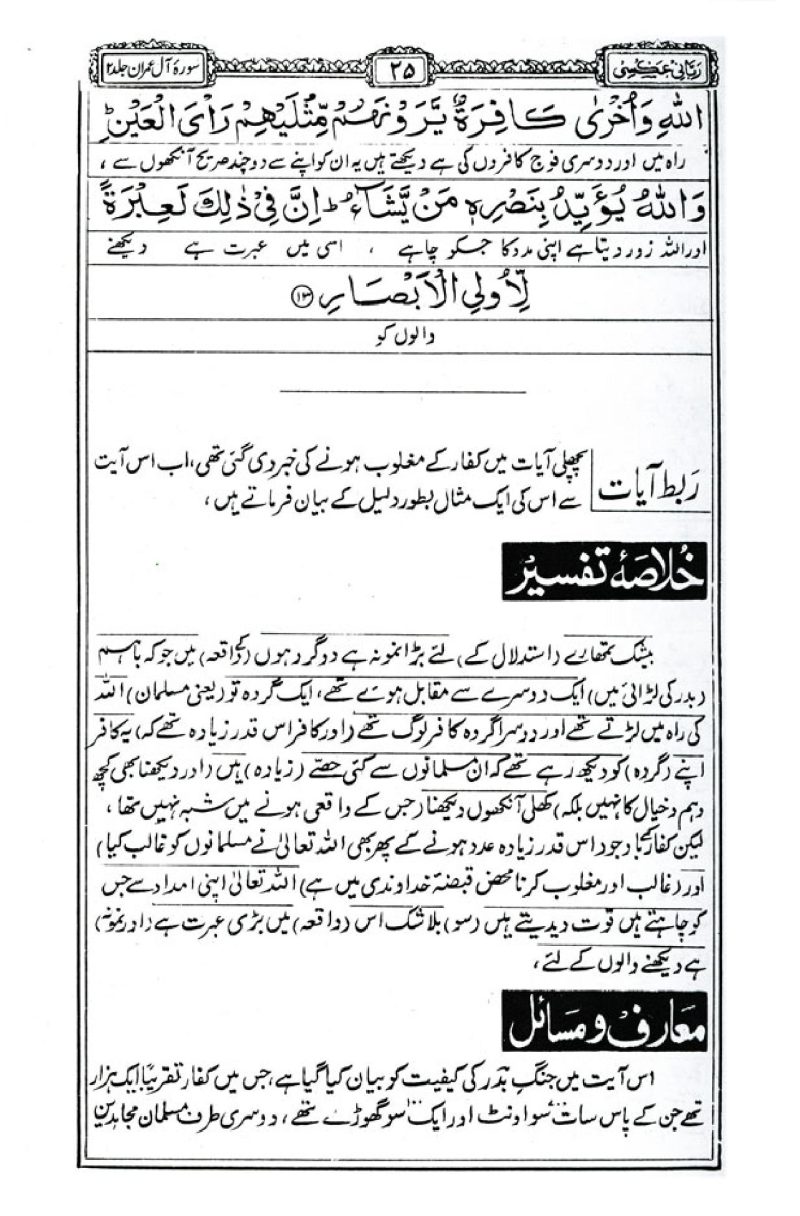 ربانی عکسی
۲۵
سورۂ آل عمران جلد ۲
اللّٰهِ وَاُخْرٰى كَافِرَةٌ يَّرَوْنَهُمْ مِّثْلَيْهِمْ رَاْىَ الْعَيْنِ ؕ
راہ میں اور دوسری فوج کافروں کی ہے دیکھتے ہیں یہ ان کو اپنے سے دو چند صریح آنکھوں سے ،
وَاللّٰهُ يُؤَيِّدُ بِنَصْرِهٖ مَنْ يَّشَآءُ ؕ اِنَّ فِيْ ذٰلِكَ لَعِبْرَةً
اور اللہ زور دیتا ہے اپنی مدد کا جسکو چاہے ، اسی میں عبرت ہے دیکھنے
لِّاُولِي الْاَبْصَارِ ﴿۱۳﴾
والوں کو
ربط آیات
پچھلی آیات میں کفار کے مغلوب ہونے کی خبر دی گئی تھی، اب اس آیت
سے اس کی ایک مثال بطور دلیل کے بیان فرماتے ہیں ،
خلاصۂ تفسیر
بیشک تمھارے (استدلال کے) لئے بڑا نمونہ ہے دو گروہوں (کے واقعہ) میں جو کہ باہم
(بدر کی لڑائی میں) ایک دوسرے سے مقابل ہوئے تھے، ایک گروہ تو (یعنی مسلمان) اللہ
کی راہ میں لڑتے تھے اور دوسرا گروہ کافر لوگ تھے (اور کافر اس قدر زیادہ تھے کہ) یہ کافر
اپنے (گروہ) کو دیکھ رہے تھے کہ ان مسلمانوں سے کئی حصے (زیادہ) ہیں (اور دیکھنا بھی کچھ
وہم و خیال کا نہیں بلکہ) کھلی آنکھوں دیکھنا (جس کے واقعی ہونے میں شبہ نہیں تھا ،
لیکن کفار کے باوجود اس قدر زیادہ عدد ہونے کے پھر بھی اللہ تعالیٰ نے مسلمانوں کو غالب کیا)
اور (غالب اور مغلوب کرنا محض قبضۂ خداوندی میں ہے) اللہ تعالیٰ اپنی امداد سے جس
کو چاہتے ہیں قوت دیدیتے ہیں (سو) بلاشک اس (واقعہ) میں بڑی عبرت ہے (اور نمونہ)
ہے دیکھنے والوں کے لئے ،
معارف و مسائل
اس آیت میں جنگِ بدر کی کیفیت کو بیان کیا گیا ہے، جس میں کفار تقریباً ایک ہزار
تھے جن کے پاس سات سو اونٹ اور ایک سو گھوڑے تھے ، دوسری طرف مسلمان مجاہدین